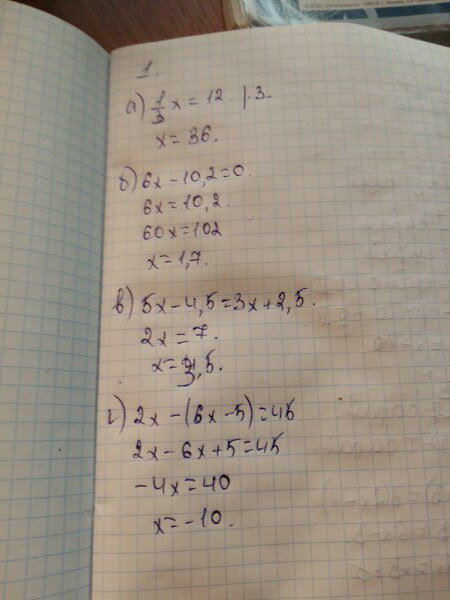 1.
а) 1/3 x = 12 | · 3
x = 36.
б) 6x - 10,2 = 0.
6x = 10,2.
60x = 102
x = 1,7.
в) 5x - 4,5 = 3x + 2,5.
2x = 7.
x = 3,5.
г) 2x - (6x - 5) = 45
2x - 6x + 5 = 45
-4x = 40
x = -10.